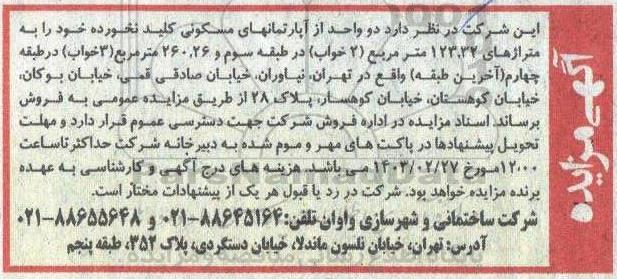 آگهی مزایده
این شرکت در نظر دارد دو واحد از آپارتمانهای مسکونی کلید نخورده خود را به
متراژهای ۱۲۳.۳۷ متر مربع (۲ خواب) در طبقه سوم و ۲۶۰.۲۶ مترمربع (۳خواب) درطبقه
چهارم(آخرین طبقه) واقع در تهران، نیاوران، خیابان صادقی قمی، خیابان بوکان،
خیابان کوهستان، خیابان کوهسار، پلاک ۲۸ از طریق مزایده عمومی به فروش
برساند. اسناد مزایده در اداره فروش شرکت جهت دسترسی عموم قرار دارد و مهلت
تحویل پیشنهادها در پاکت های مهر و موم شده به دبیرخانه شرکت حداکثر تاساعت
۱۲:۰۰مورخ ۱۴۰۳/۰۲/۲۷ می باشد. هزینه های درج آگهی و کارشناسی به عهده
برنده مزایده خواهد بود. شرکت در رد یا قبول هر یک از پیشنهادات مختار است.
شرکت ساختمانی و شهرسازی واوان تلفن: ۸۸۶۴۵۱۶۴-۰۲۱ و ۸۸۶۵۵۶۴۸-۰۲۱
آدرس: تهران، خیابان نلسون ماندلا، خیابان دستگردی، پلاک ۳۵۲، طبقه پنجم